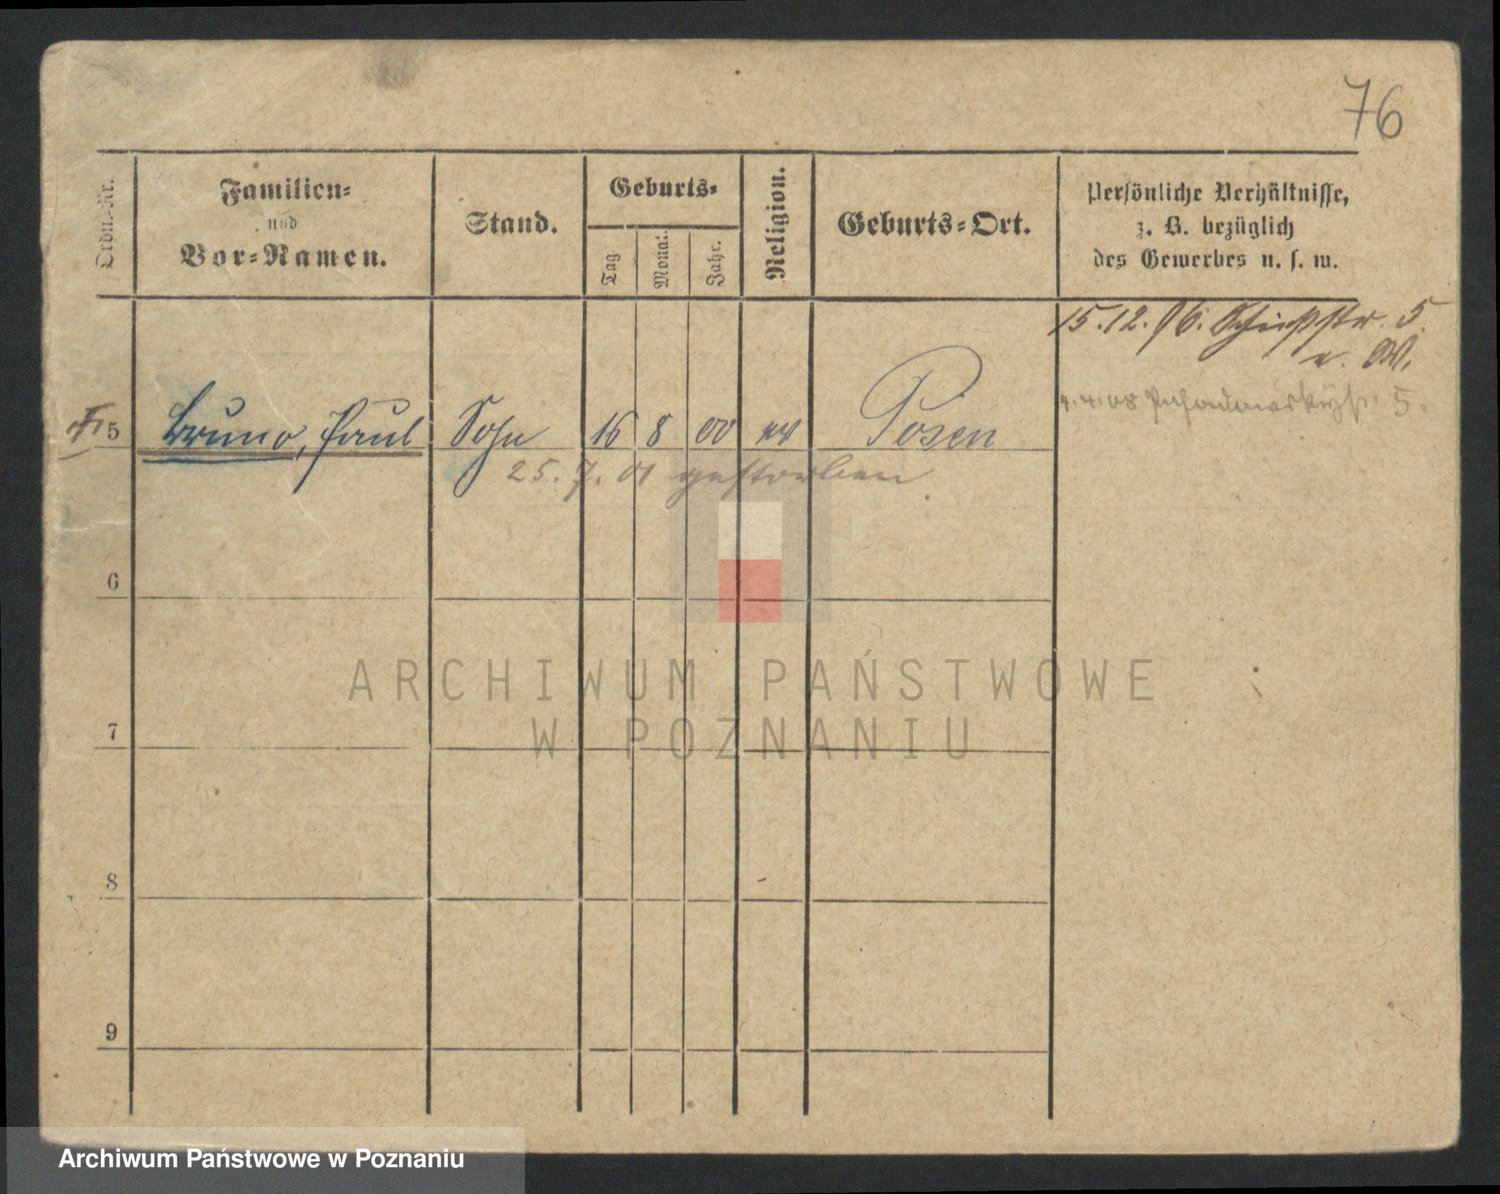 76
Ordn.-Nr.
Familien-
und
Vor-Namen.
Stand.
Geburts-
Tag
Monat.
Jahr.
Religion.
Geburts-Ort.
Persönliche Verhältnisse,
z. B. bezüglich
des Gewerbes u. s. w.
15.12.96. Schießstr. 5.
5 Bruno, Paul Sohn 16 8 00 Posen
5.
25.7.01 gestorben.
6
7
8
9
ARCHIWUM PAŃSTWOWE
W POZNANIU
Archiwum Państwowe w Poznaniu